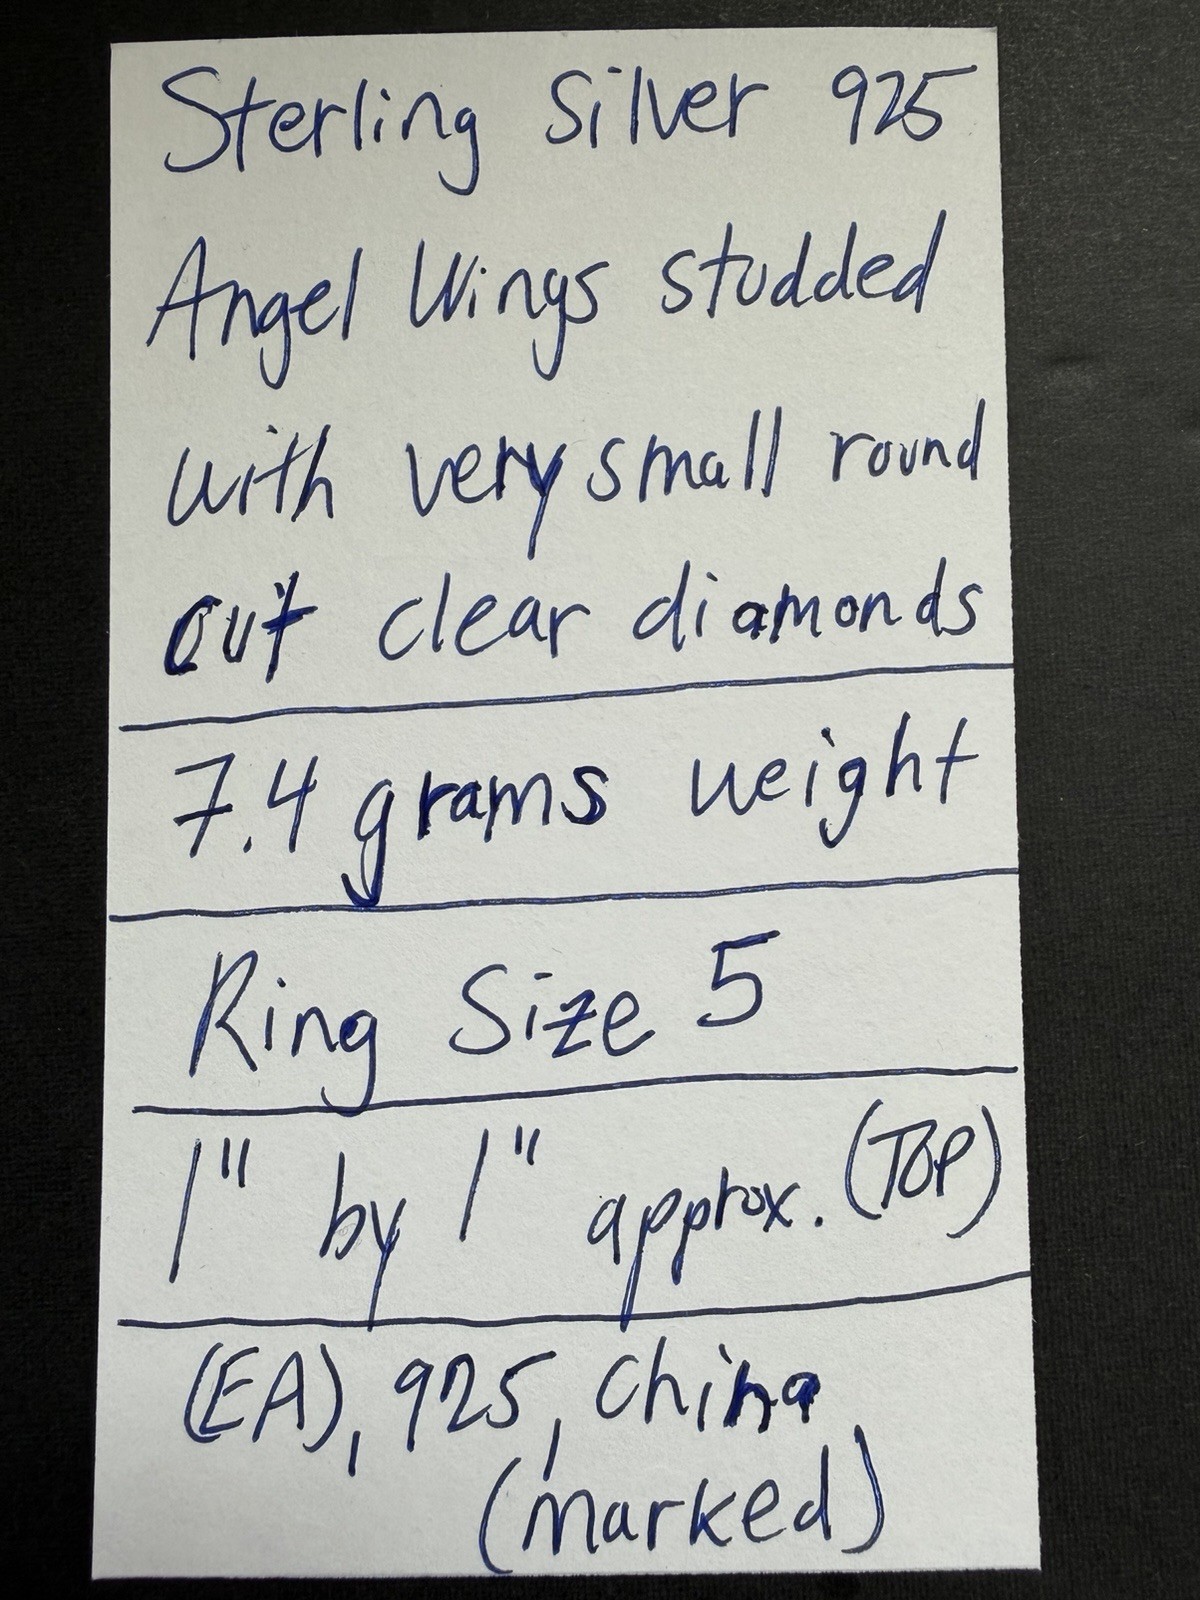 Sterling Silver 925
Angel Wings studded
with very small round
cut clear diamonds
7.4 grams weight
Ring Size 5
1" by 1" approx. (TOP)
(EA), 925, China
(marked)